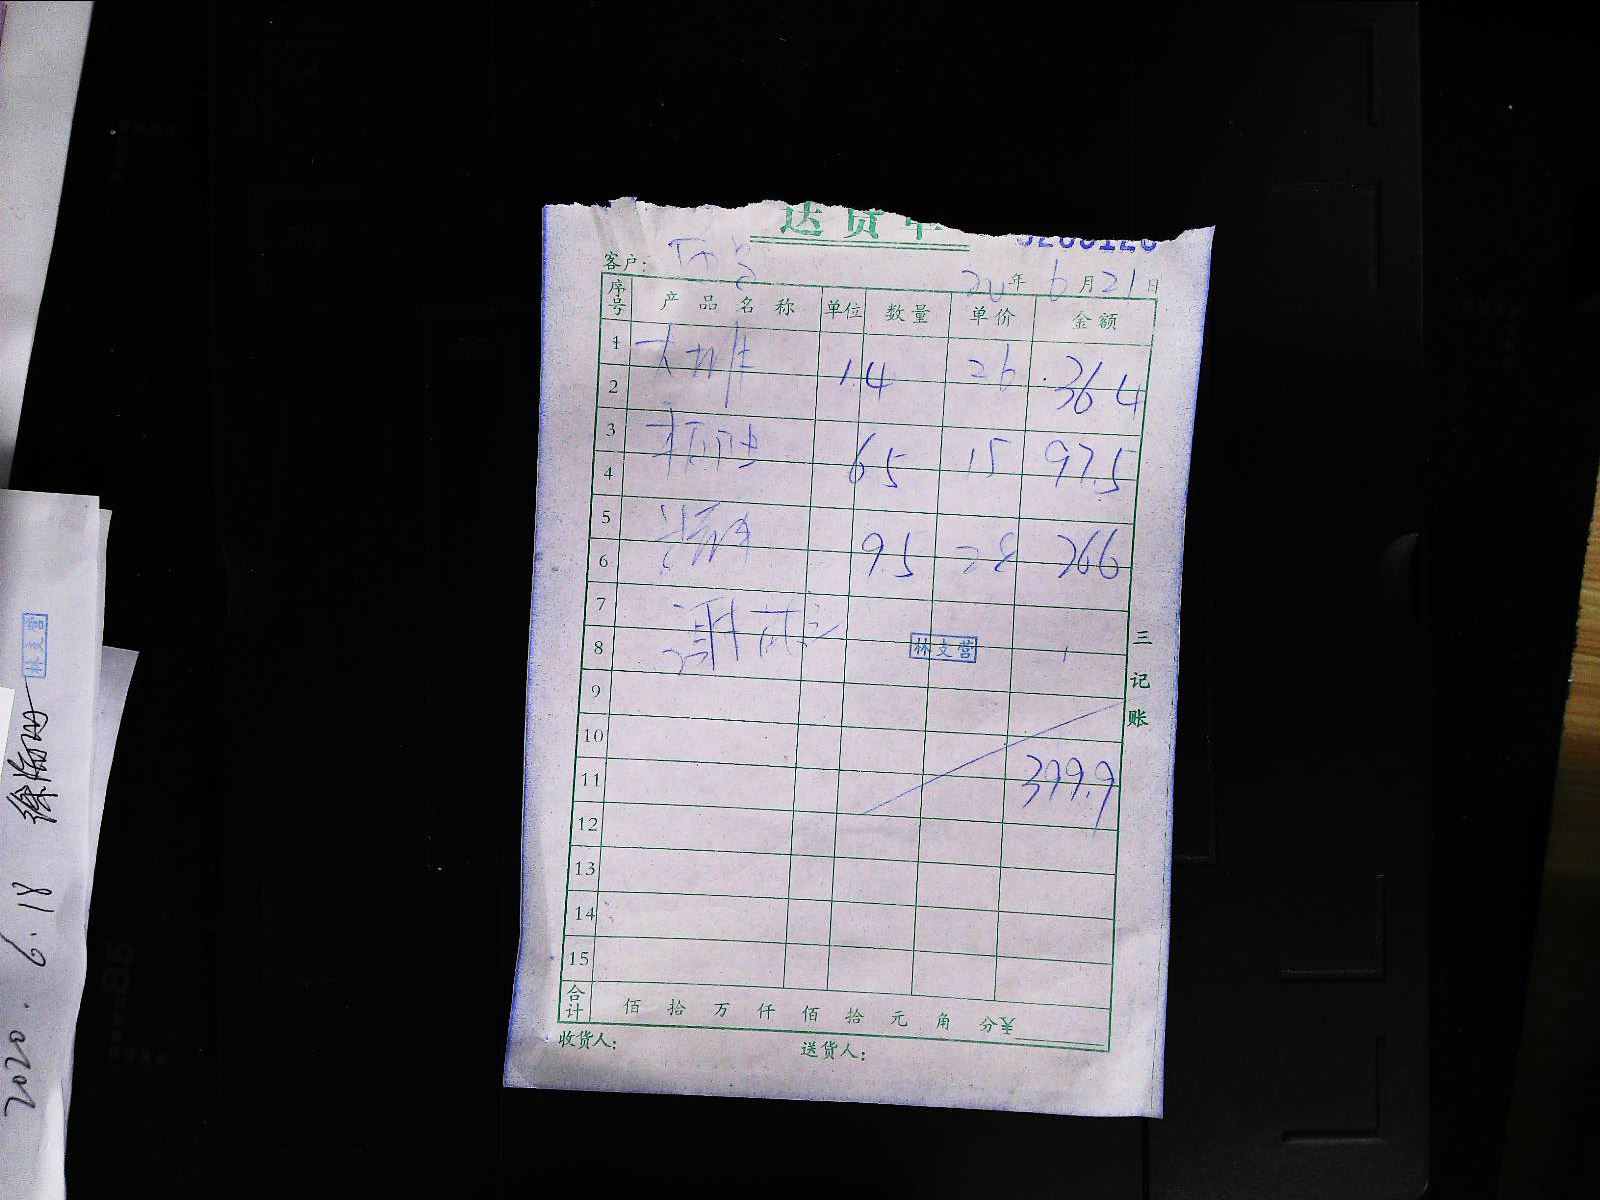 送货单
客户：
20年6月21日
序号 产品名称 单位 数量 单价 金额
1 大排 1.4 26 36.4
2
3 6.5 15 97.5
4
5 9.5 28 266
6
7
8 林支营
9
10
11 399.9
12
13
14
15
合计 佰 拾 万 仟 佰 拾 元 角 分¥
收货人： 送货人：
三记账
林支营
2020.6.18